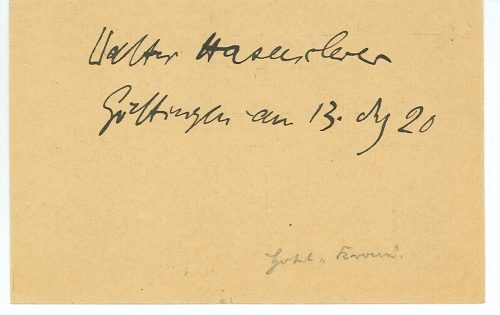 Walter Hasenclever
Göttingen am 13. Dez 20
Hotel „Krone".